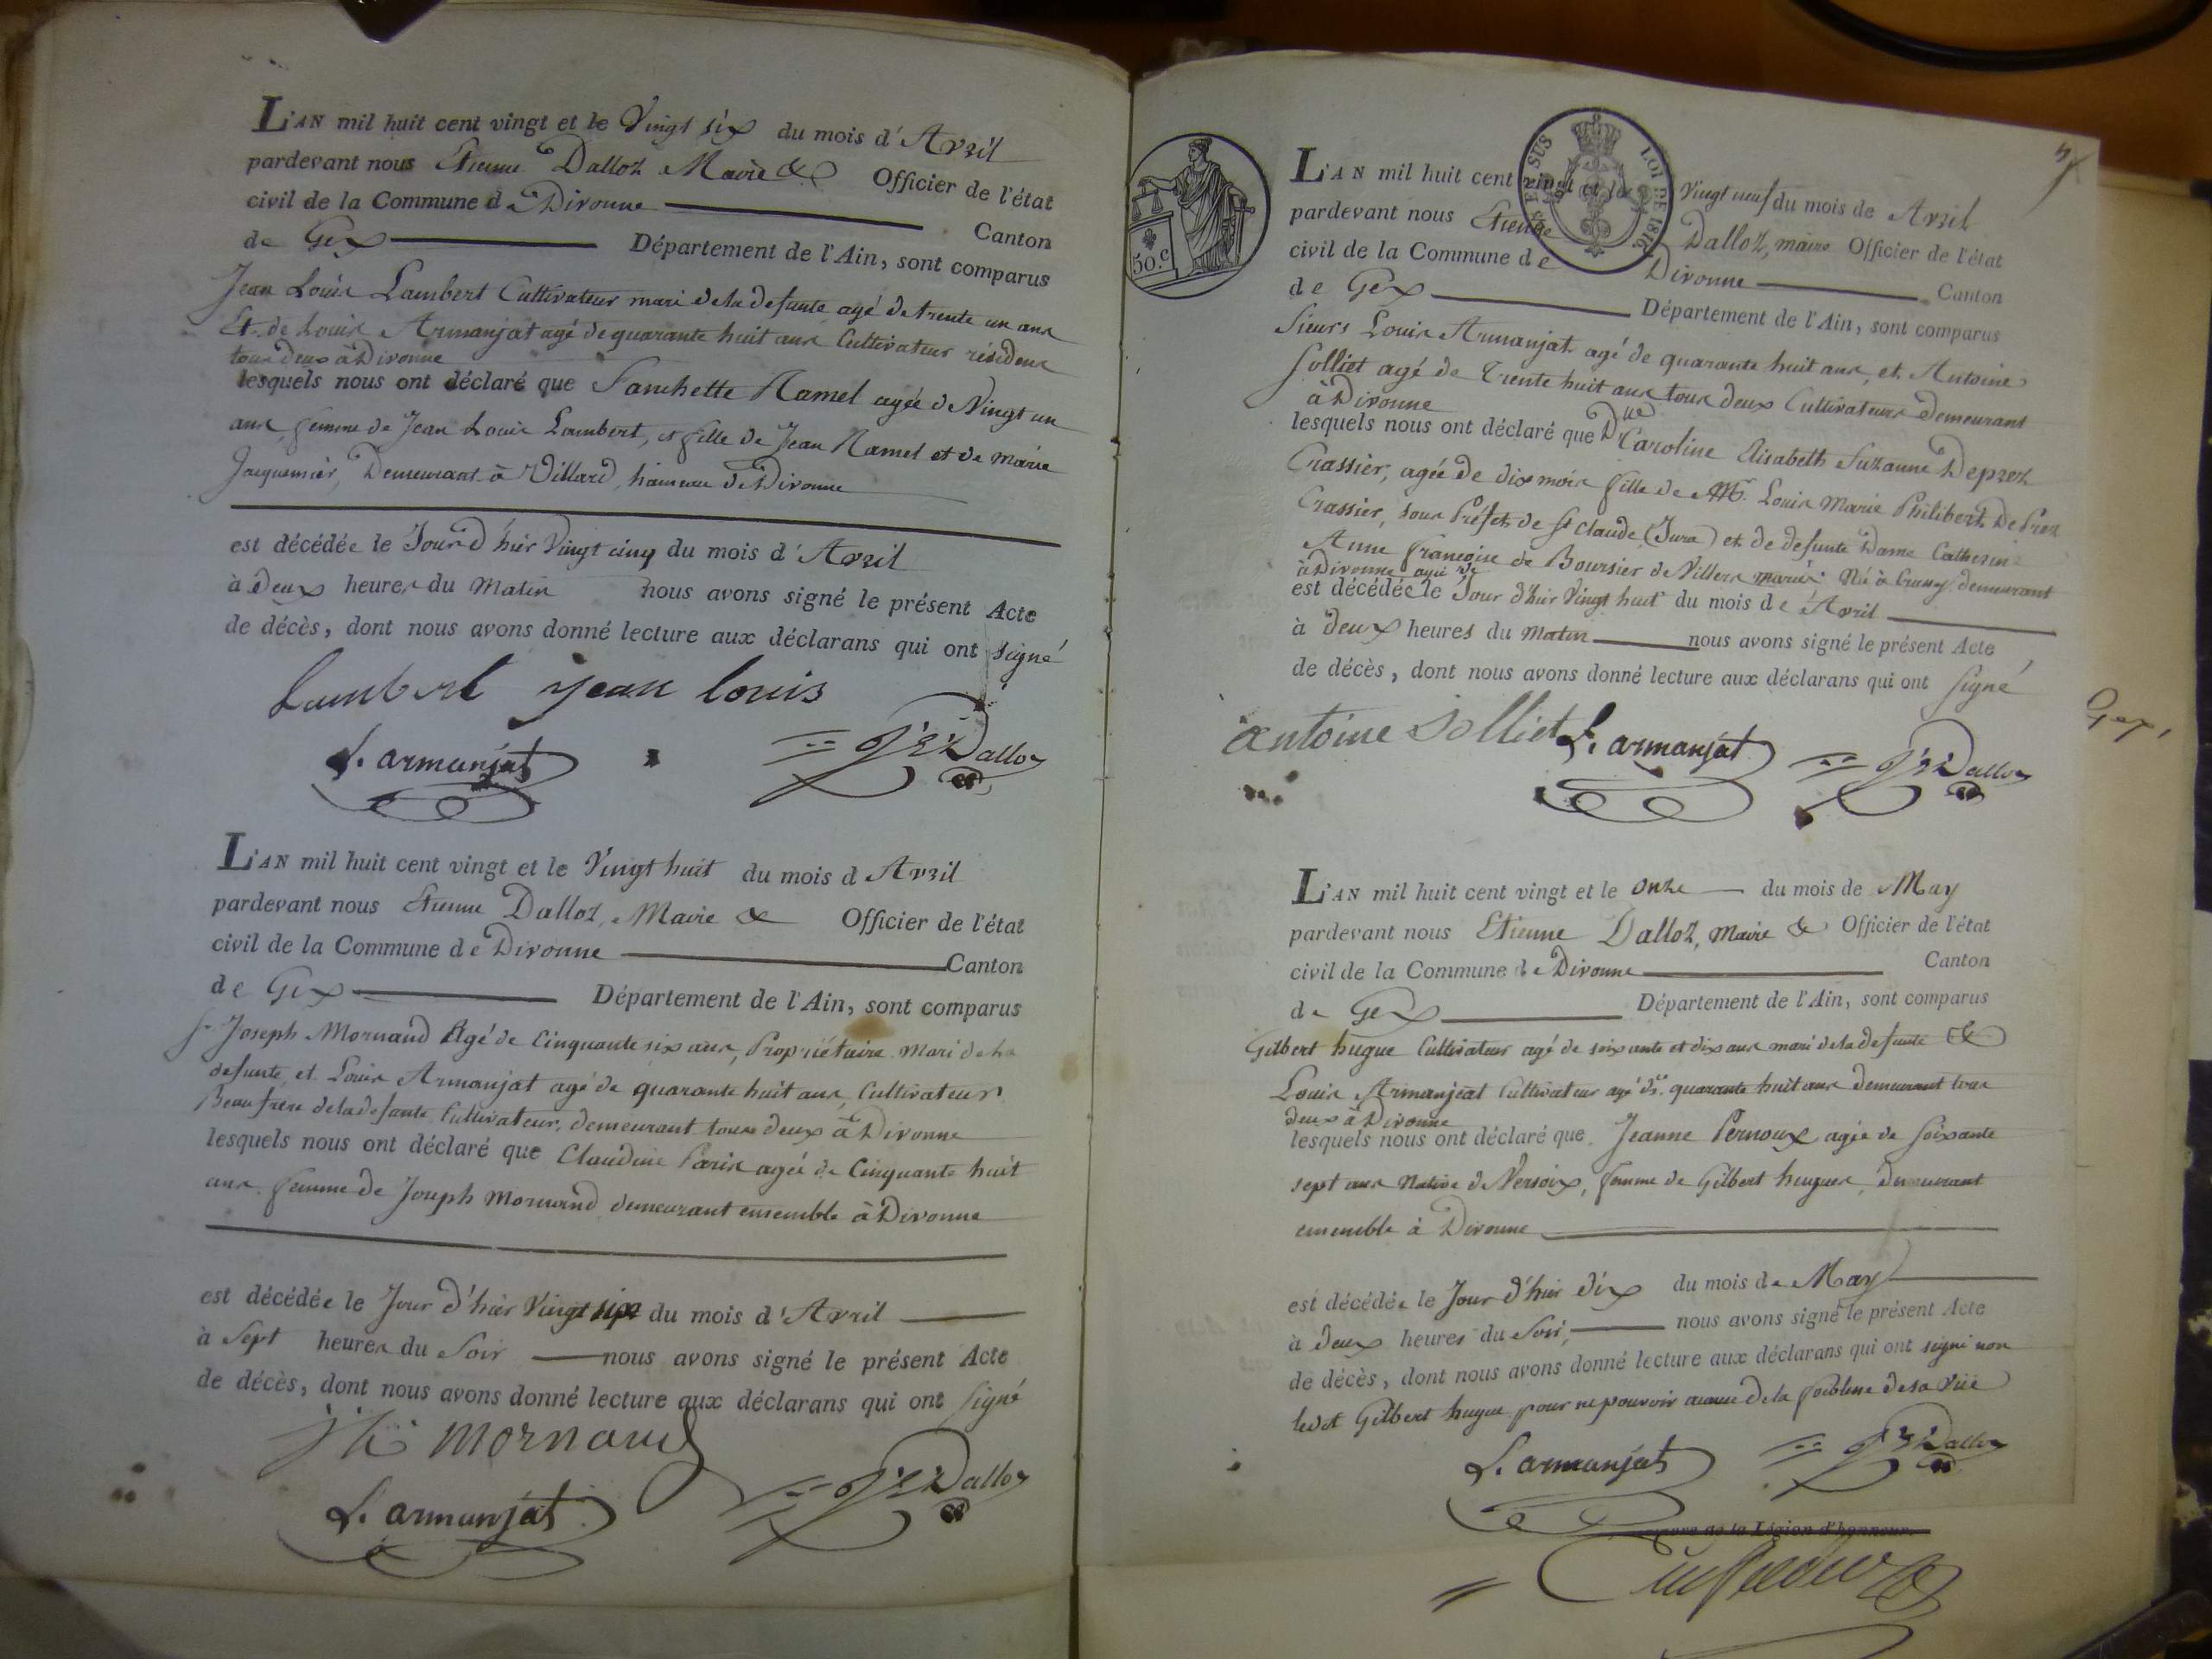 L'AN mil huit cent vingt et le Vingt six du mois d'Avril
pardevant nous Etienne Dalloz Maire & Officier de l'état
civil de la Commune de Divonne Canton
de Gex Département de l'Ain, sont comparus
Jean Louis Lambert Cultivateur mari de la defunte agé de trente un ans
Et de Louis Armanjat agé de quarante huit ans Cultivateur résidens
tous deux à Divonne
lesquels nous ont déclaré que Fanchette Hamel agée de Vingt un
ans, femme de Jean Louis Lambert, et fille de Jean Hamel et de Marie
Jacquemier, Demeurant à Villard, hameau de Divonne
est décédée le Jour d'hier Vingt cinq du mois d'Avril
à deux heures du Matin nous avons signé le présent Acte
de décès, dont nous avons donné lecture aux déclarans qui ont signé
Lambert jean louis
L. armanjat Dalloz
L'AN mil huit cent vingt et le Vingt huit du mois d Avril
pardevant nous Etienne Dalloz, Maire & Officier de l'état
civil de la Commune de Divonne Canton
de Gex Département de l'Ain, sont comparus
Sr Joseph Mornand Agé de Cinquante six ans, Propriétaire Mari de la
defunte, et Louis Armanjat agé de quarante huit ans, Cultivateur
Beau frere de la defunte Cultivateur, demeurant tous deux à Divonne
lesquels nous ont déclaré que Claudine Paris agée de Cinquante huit
ans, femme de Joseph Mornand demeurant ensemble à Divonne
est décédée le Jour d'hier Vingt du mois d'Avril
à Sept heures du Soir nous avons signé le présent Acte
de décès, dont nous avons donné lecture aux déclarans qui ont Signé
mornand
L. armanjat Dalloz
50.c
LOI DE 1816
L'AN mil huit cent vingt et le Vingt neuf du mois de Avril
pardevant nous Etienne Dalloz, maire Officier de l'état
civil de la Commune de Divonne Canton
de Gex Département de l'Ain, sont comparus
Sieurs Louis Armanjat agé de quarante huit ans, et Antoine
Solliet agé de Trente huit ans tous deux Cultivateurs Demeurant
à Divonne
lesquels nous ont déclaré que Dlle Caroline Elisabeth Suzanne Deprez
Crassier, agée de dix mois fille de Mr. Louis Marie Philibert De Prez
Crassier, sous Préfet de St Claude (Jura) et de defunte Dame Catherine
Anne Françoise de Boursier de Villers Née à demeurant
à Divonne
est décédée le Jour d'hier Vingt huit du mois de Avril
à deux heures du Matin nous avons signé le présent Acte
de décès, dont nous avons donné lecture aux déclarans qui ont Signé
antoine Solliet L. armanjat Dalloz
Gex,
L'AN mil huit cent vingt et le Onze du mois de May
pardevant nous Etienne Dalloz, Maire & Officier de l'état
civil de la Commune de Divonne Canton
de Gex Département de l'Ain, sont comparus
Gilbert hugue Cultivateur agé de soixante et dix ans mari de la defunte &
Louis Armanjeat Cultivateur agé de quarante huit ans demeurant tous
deux à Divonne
lesquels nous ont déclaré que Jeanne Pernoux agée de soixante
sept ans Native de Versoix, femme de Gilbert hugues, demeurant
ensemble à Divonne
est décédée le Jour d'hier dix du mois de May
à deux heures du Soir, nous avons signé le présent Acte
de décès, dont nous avons donné lecture aux déclarans qui ont signé non
ledt Gilbert hugue pour ne pouvoir de la foiblesse de sa Vüe
L. armanjat Dalloz
de la Légion d'honneur.